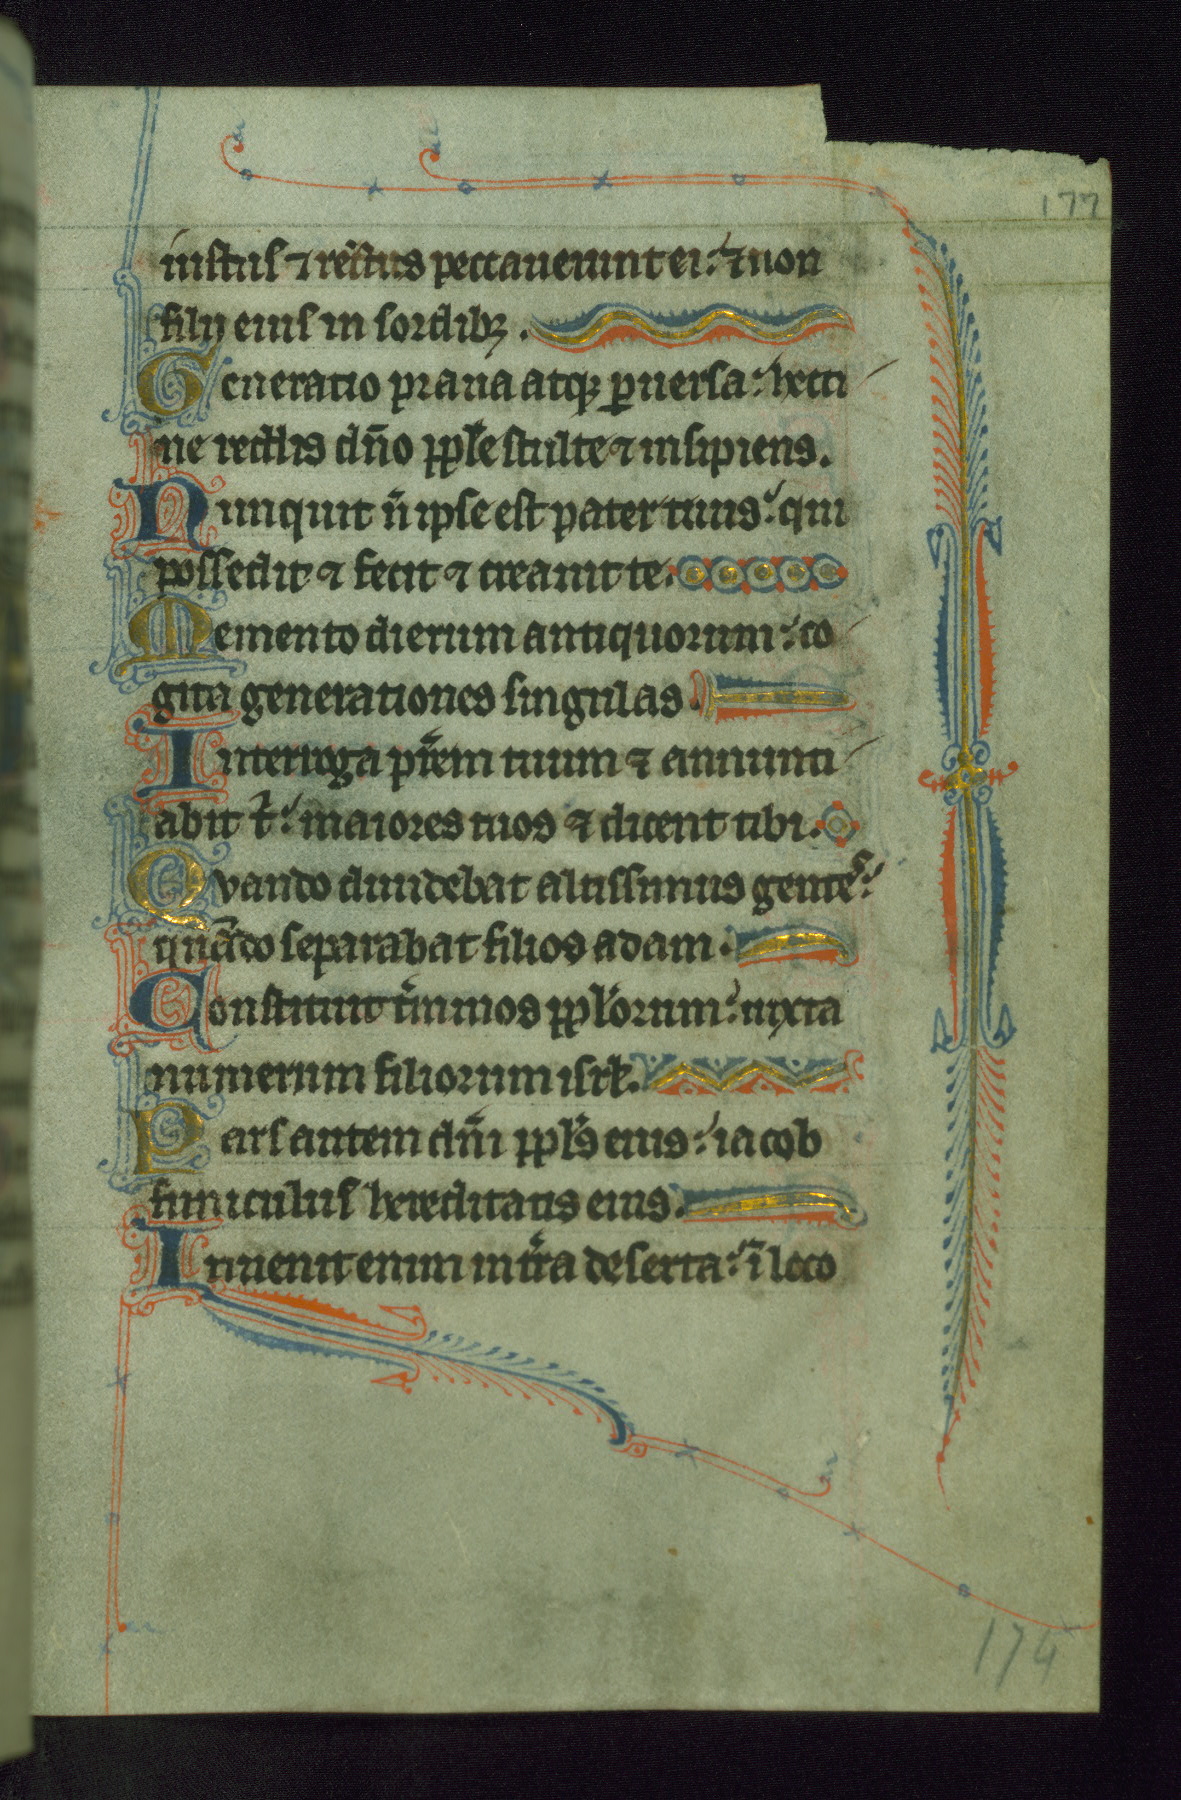 177
iustus ⁊ rectus peccauerunt ei: ⁊ non
filii eius in sordibꝫ.
Generatio praua atqꝫ ꝑuersa: hecci
ne reddis dn̄o pple stulte ⁊ insipiens.
Nunquit n̄ ipse est pater tuus: qui
possedit ⁊ fecit ⁊ creauit te.
Memento dierum antiquorum: co
gita generationes singulas.
Interroga pr̄em tuum ⁊ annunti
abit t̄: maiores tuos ⁊ dicent tibi.
Quando diuidebat altissimus gentes:
quādo separabat filios adam.
Constituit t̄minos pplorum: iuxta
numerum filiorum isrl̄.
Pars autem dn̄i ppls eius: iacob
funiculus hereditatis eius.
Inuenit enim in tr̄a deserta: ī loco
174